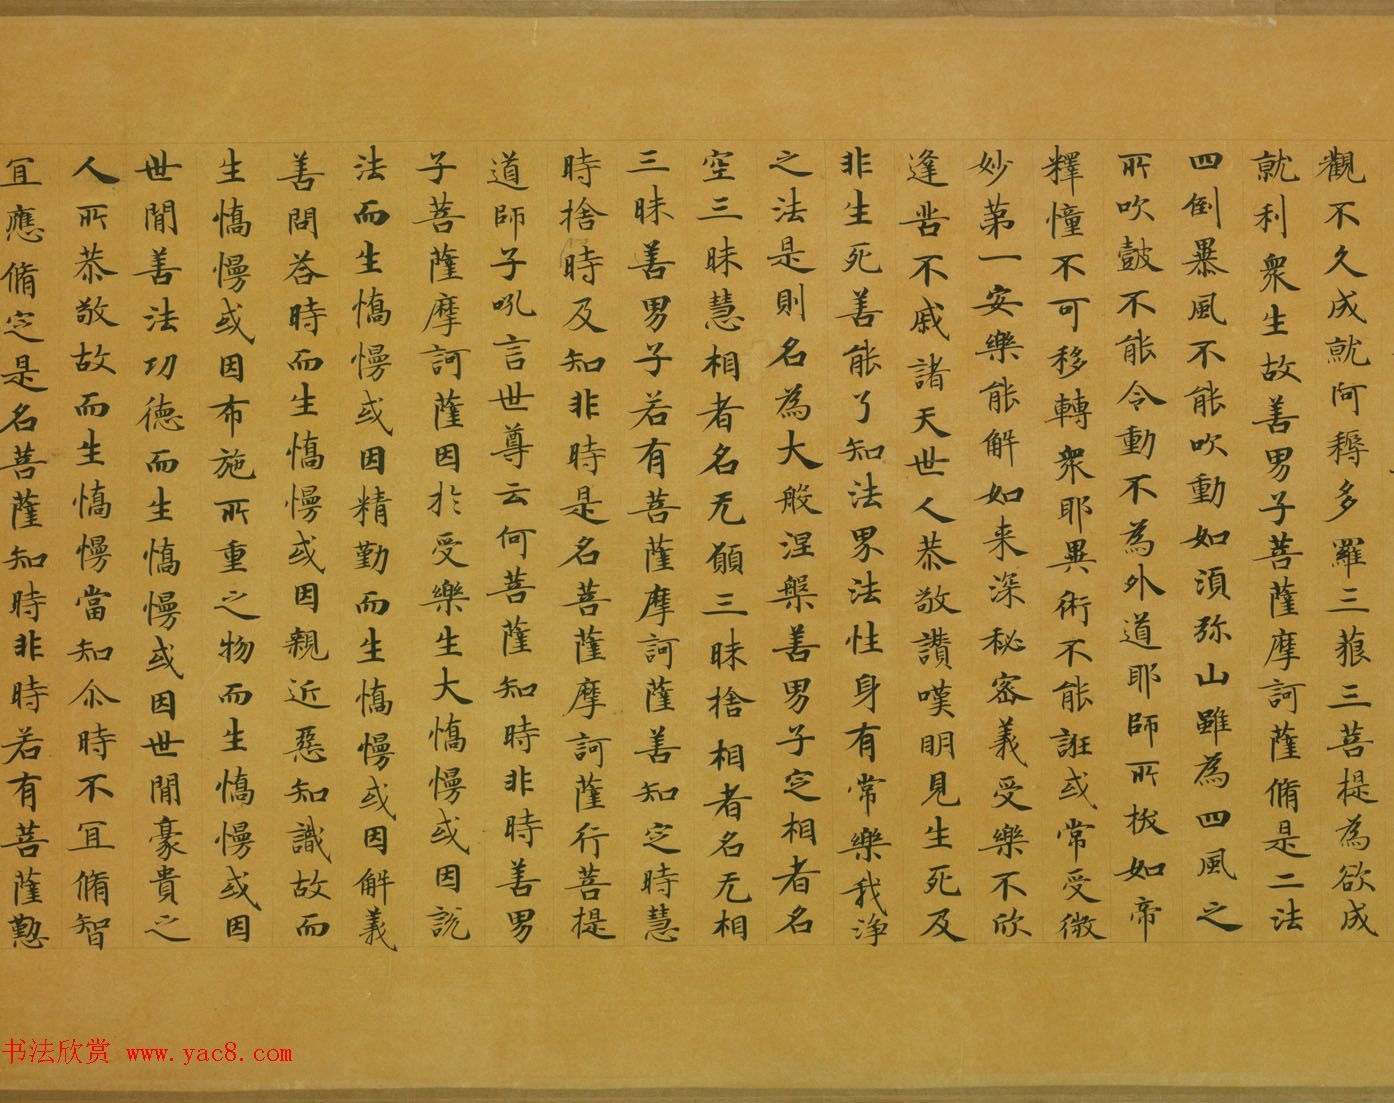 觀不久成就阿耨多羅三藐三菩提為欲成
就利衆生故善男子菩薩摩訶薩脩是二法
四倒暴風不能吹動如須弥山雖為四風之
所吹鼓不能令動不為外道耶師所拔如帝
釋憧不可移轉衆耶異術不能誑或常受微
妙第一安樂能解如来深秘密義受樂不欣
逢苦不戚諸天世人恭敬讚嘆明見生死及
非生死善能了知法界法性身有常樂我淨
之法是則名為大般涅槃善男子定相者名
空三昧慧相者名无願三昧捨相者名无相
三昧善男子若有菩薩摩訶薩善知定時慧
時捨時及知非時是名菩薩摩訶薩行菩提
道師子吼言世尊云何菩薩知時非時善男
子菩薩摩訶薩因於受樂生大憍慢或因說
法而生憍慢或因精勤而生憍慢或因解義
善問荅時而生憍慢或因親近惡知識故而
生憍慢或因布施所重之物而生憍慢或因
世閒善法功德而生憍慢或因世閒豪貴之
人所恭敬故而生憍慢當知尒時不宜脩智
宜應脩定是名菩薩知時非時若有菩薩懃
书法欣赏 www.yac8.com